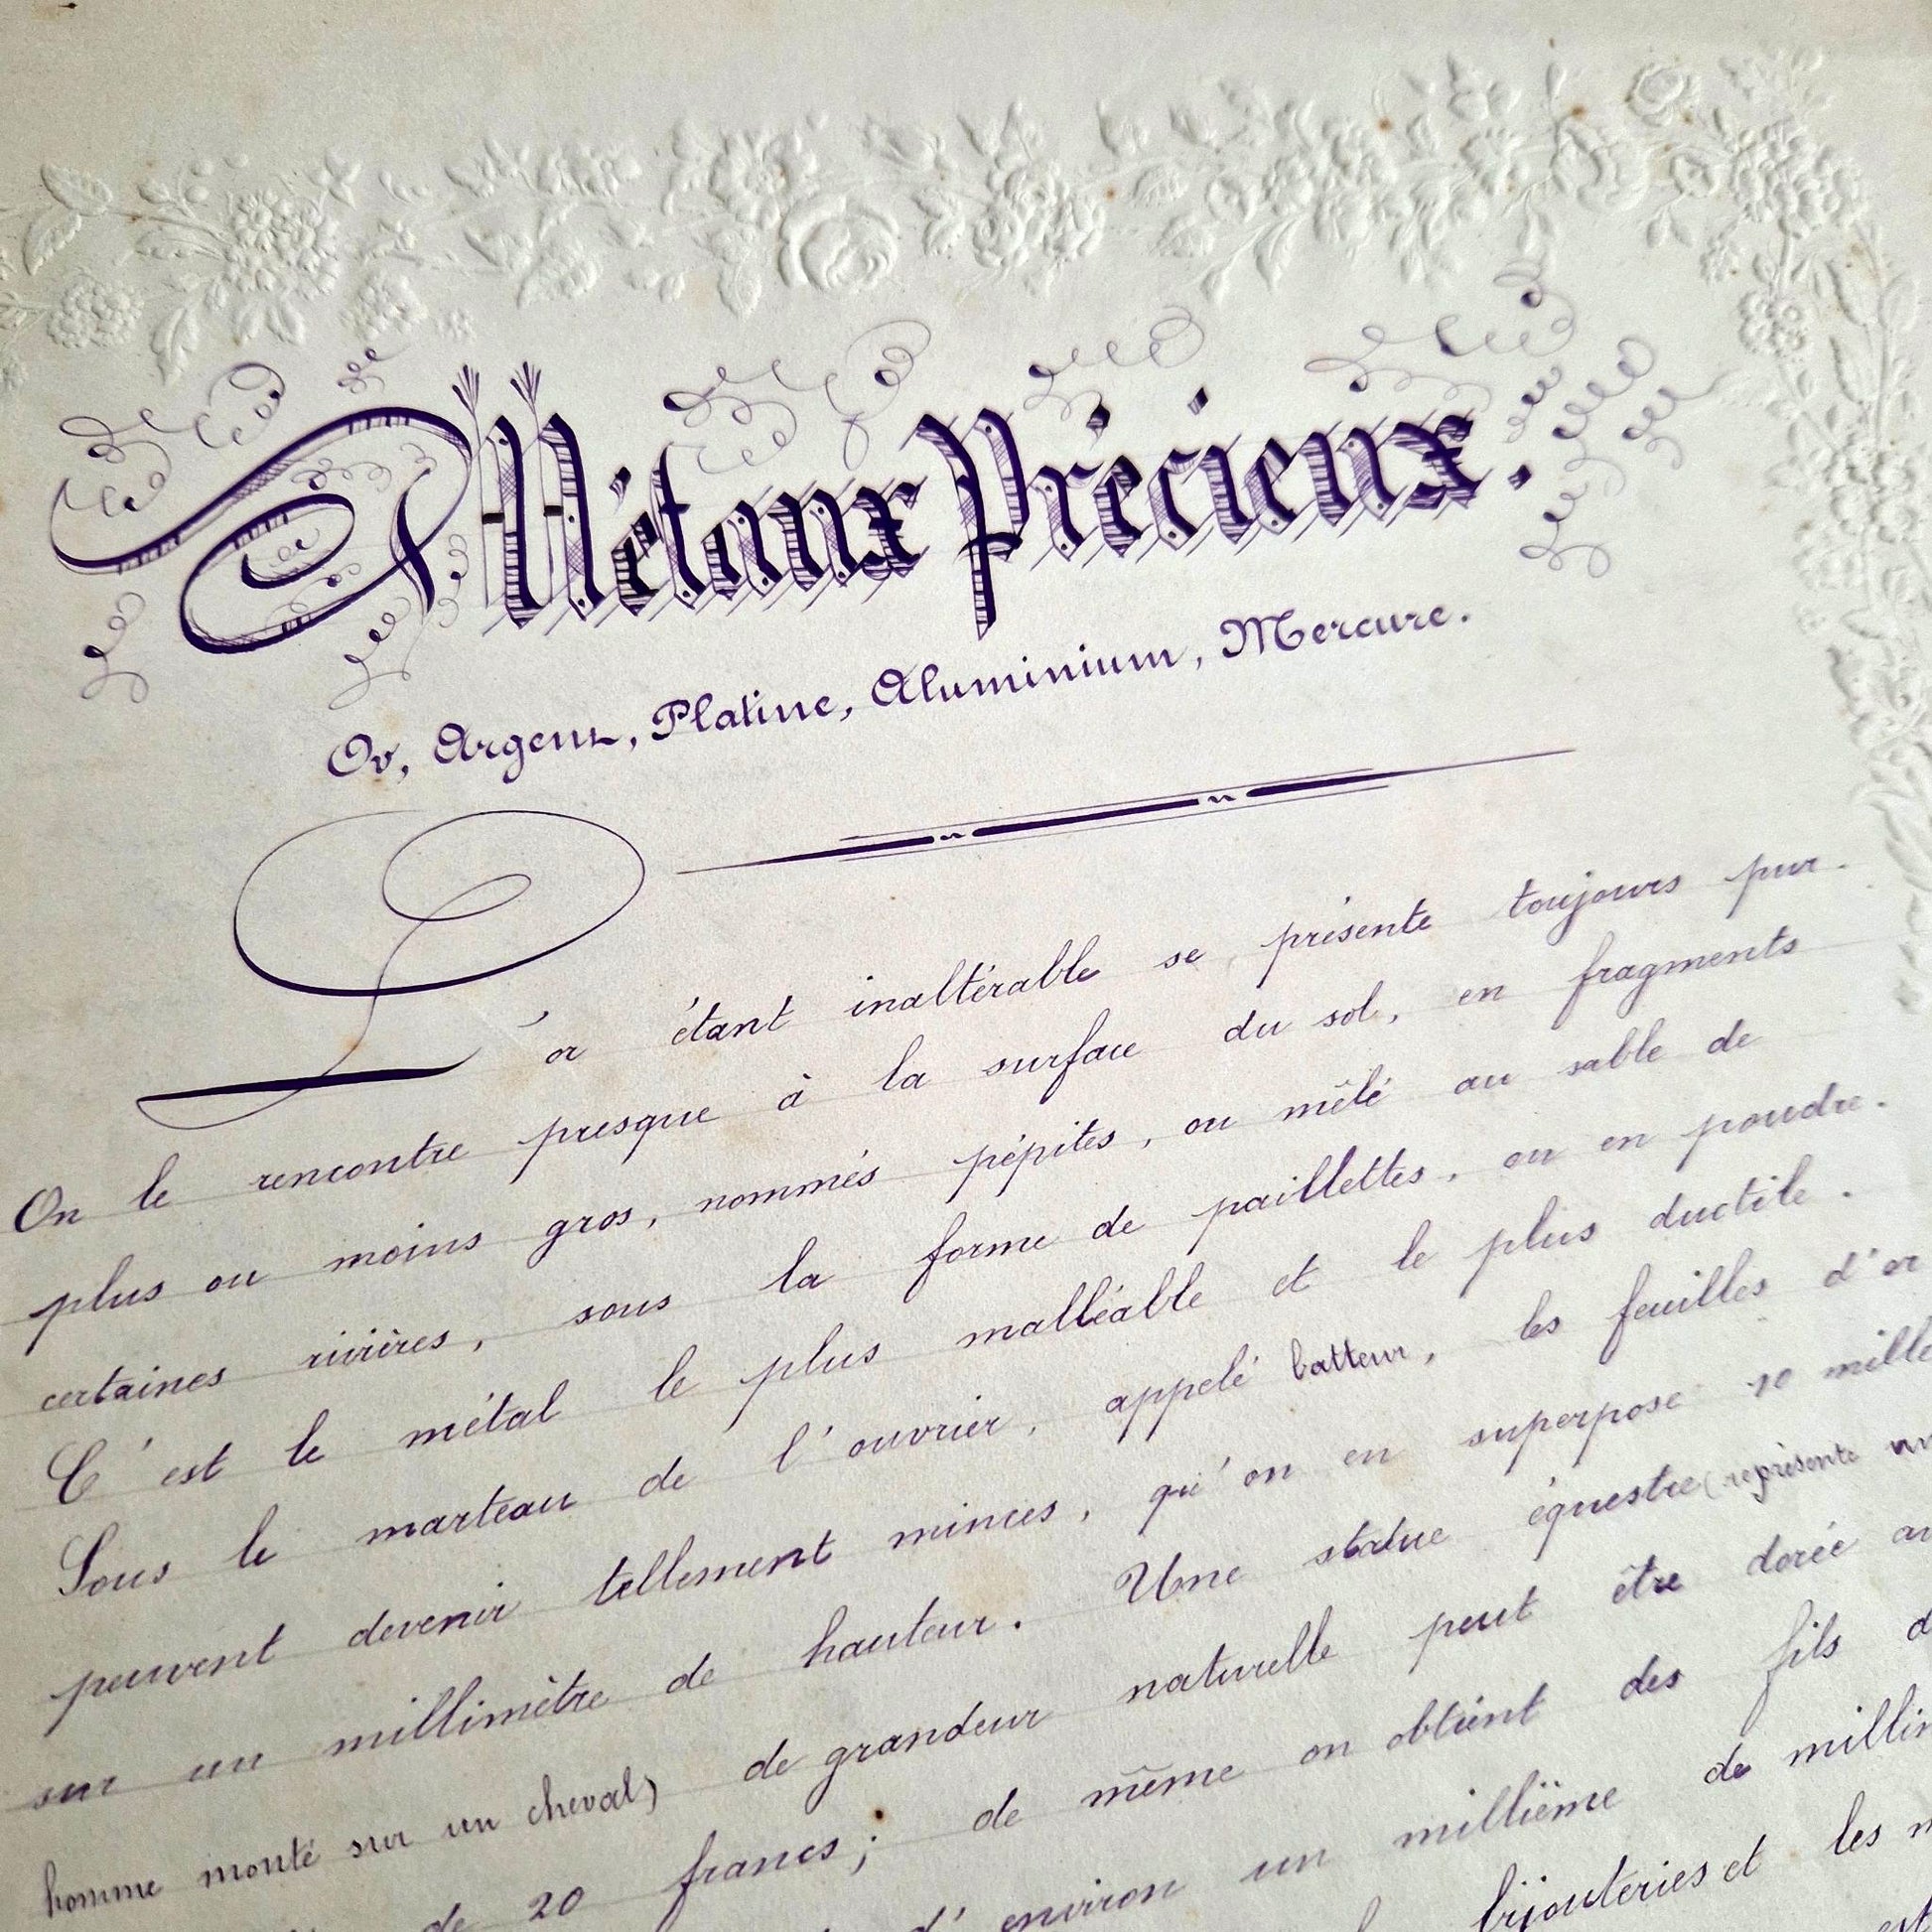 Métaux Précieux.
Or, Argent, Platine, Aluminium, Mercure.
L'or étant inaltérable se présente toujours pur.
On le rencontre presque à la surface du sol, en fragments
plus ou moins gros, nommés pépites, ou mêlé au sable de
certaines rivières, sous la forme de paillettes, ou en poudre.
C'est le métal le plus malléable et le plus ductile.
Sous le marteau de l'ouvrier, appelé batteur, les feuilles d'or
peuvent devenir tellement minces, qu'on en superpose 10 mille
sur un millimètre de hauteur. Une statue équestre (représente un
homme monté sur un cheval) de grandeur naturelle peut être dorée
de 20 francs; de même on obtient des fils
d'environ un millième de
bijouteries et les